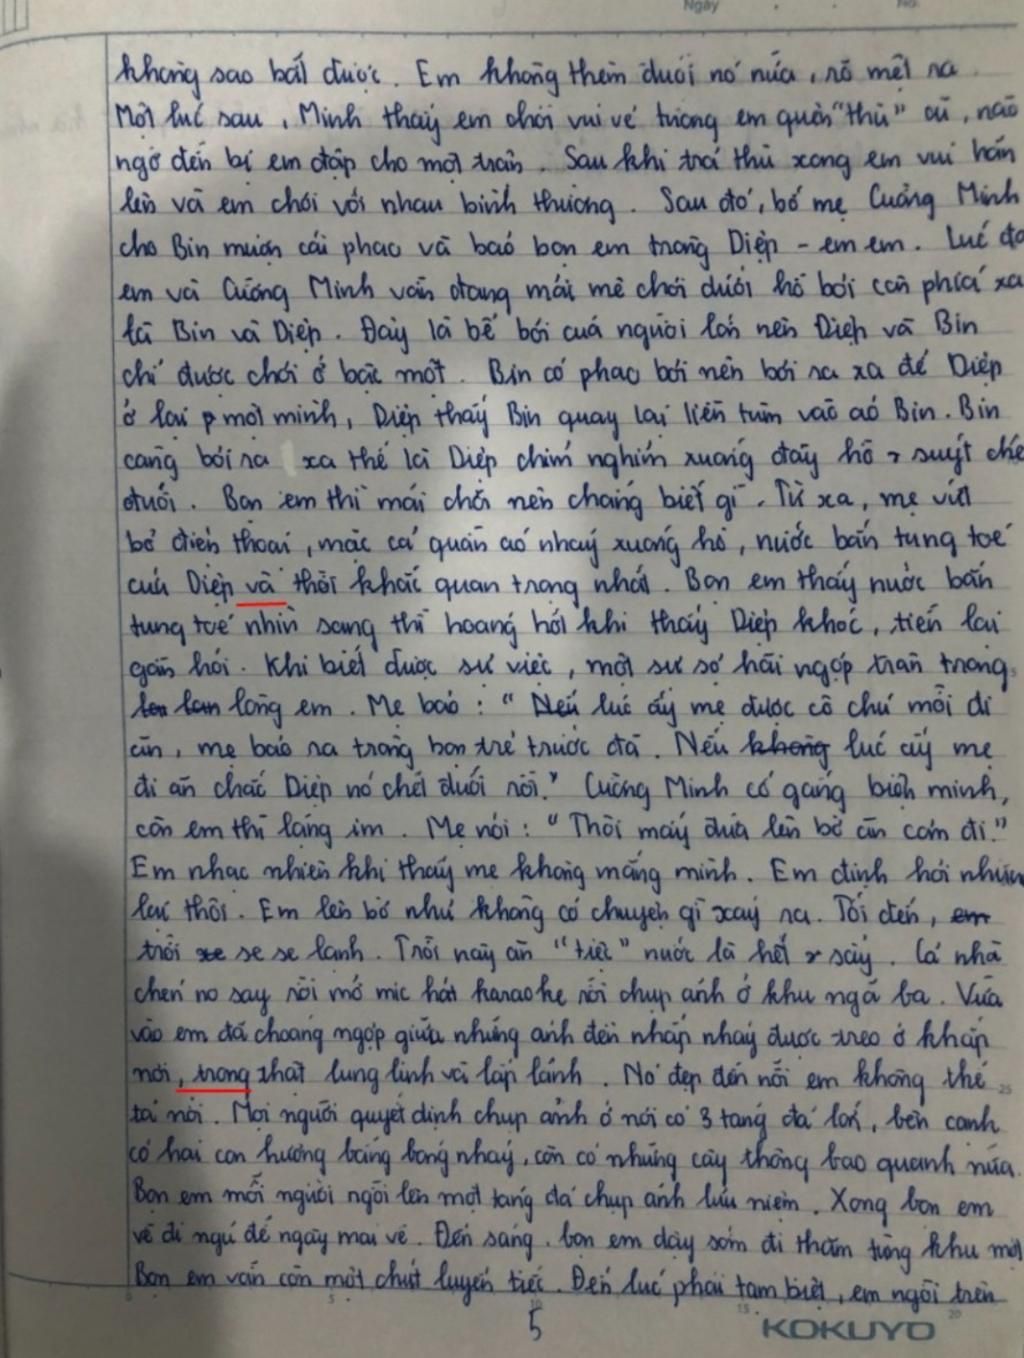 Ngày No.
không sao bắt được. Em không thèm đuổi nó nữa, rõ mệt ra
Một lúc sau, Minh thấy em chơi vui vẻ tưởng em quên "thù" cũ, nào
ngờ đến bị em đập cho một trận. Sau khi trả thù xong em vui hẳn
lên và em chơi với nhau bình thường. Sau đó, bố mẹ Cường Minh
cho Bin mượn cái phao và bảo bọn em trông Diệp - em em. Lúc đó
em và Cường Minh vẫn đang mải mê chơi dưới hồ bơi còn phía xa
là Bin và Diệp. Đây là bể bơi của người lớn nên Diệp và Bin
chỉ được chơi ở bậc một. Bin có phao bơi nên bơi ra xa để Diệp
ở lại một mình, Diệp thấy Bin quay lại liền túm vào áo Bin. Bin
càng bơi ra xa thế là Diệp chìm nghỉm xuống đáy hồ suýt chế
đuối. Bọn em thì mải chơi nên chẳng biết gì. Từ xa, mẹ vứt
bỏ điện thoại, mặc cả quần áo nhảy xuống hồ, nước bắn tung toé
cứu Diệp và thời khắc quan trọng nhất. Bọn em thấy nước bắn
tung toé nhìn sang thì hoảng hốt khi thấy Diệp khóc, tiến lại
gần hỏi. Khi biết được sự việc, một sự sợ hãi ngợp tràn trong
lòng em. Mẹ bảo: "Nếu lúc ấy mẹ được cô chú mời đi
ăn, mẹ bảo ra trông bọn trẻ trước đã. Nếu không lúc ấy mẹ
đi ăn chắc Diệp nó chết đuối rồi." Cường Minh cố gắng biện minh,
còn em thì lặng im. Mẹ nói: "Thôi mấy đứa lên bờ ăn cơm đi."
Em nhạc nhiên khi thấy mẹ không mắng mình. Em định hỏi nhưng
lại thôi. Em lên bờ như không có chuyện gì xảy ra. Tối đến, em
trời se se lạnh. Trời này ăn "tiệc" nước là hết sảy. Cả nhà
chén no say rồi mở mic hát karaoke rồi chụp ảnh ở khu ngã ba. Vừa
vào em đã choáng ngợp giữa những ánh đèn nhấp nháy được treo ở khắp
nơi, trong thật lung linh và lấp lánh. Nó đẹp đến nỗi em không thể
tả nổi. Mọi người quyết định chụp ảnh ở nơi có 3 tảng đá lớn, bên cạnh
có hai con hương bằng bông nhảy, còn có những cây thông bao quanh nữa.
Bọn em mỗi người ngồi lên một tảng đá chụp ảnh lưu niệm. Xong bọn em
về đi ngủ để ngày mai về. Đến sáng, bọn em dậy sớm đi thăm từng khu một
Bọn em vẫn còn một chút luyến tiếc. Đến lúc phải tạm biệt, em ngồi trên
5
KOKUYO